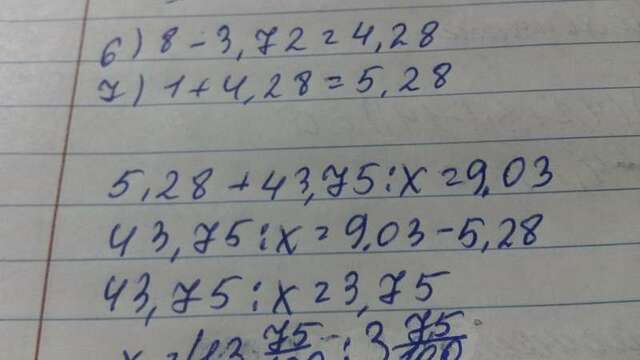 6) 8 - 3,72 = 4,28
7) 1 + 4,28 = 5,28
5,28 + 43,75 : x = 9,03
43,75 : x = 9,03 - 5,28
43,75 : x = 3,75
x = 43 75/100 : 3 75/100